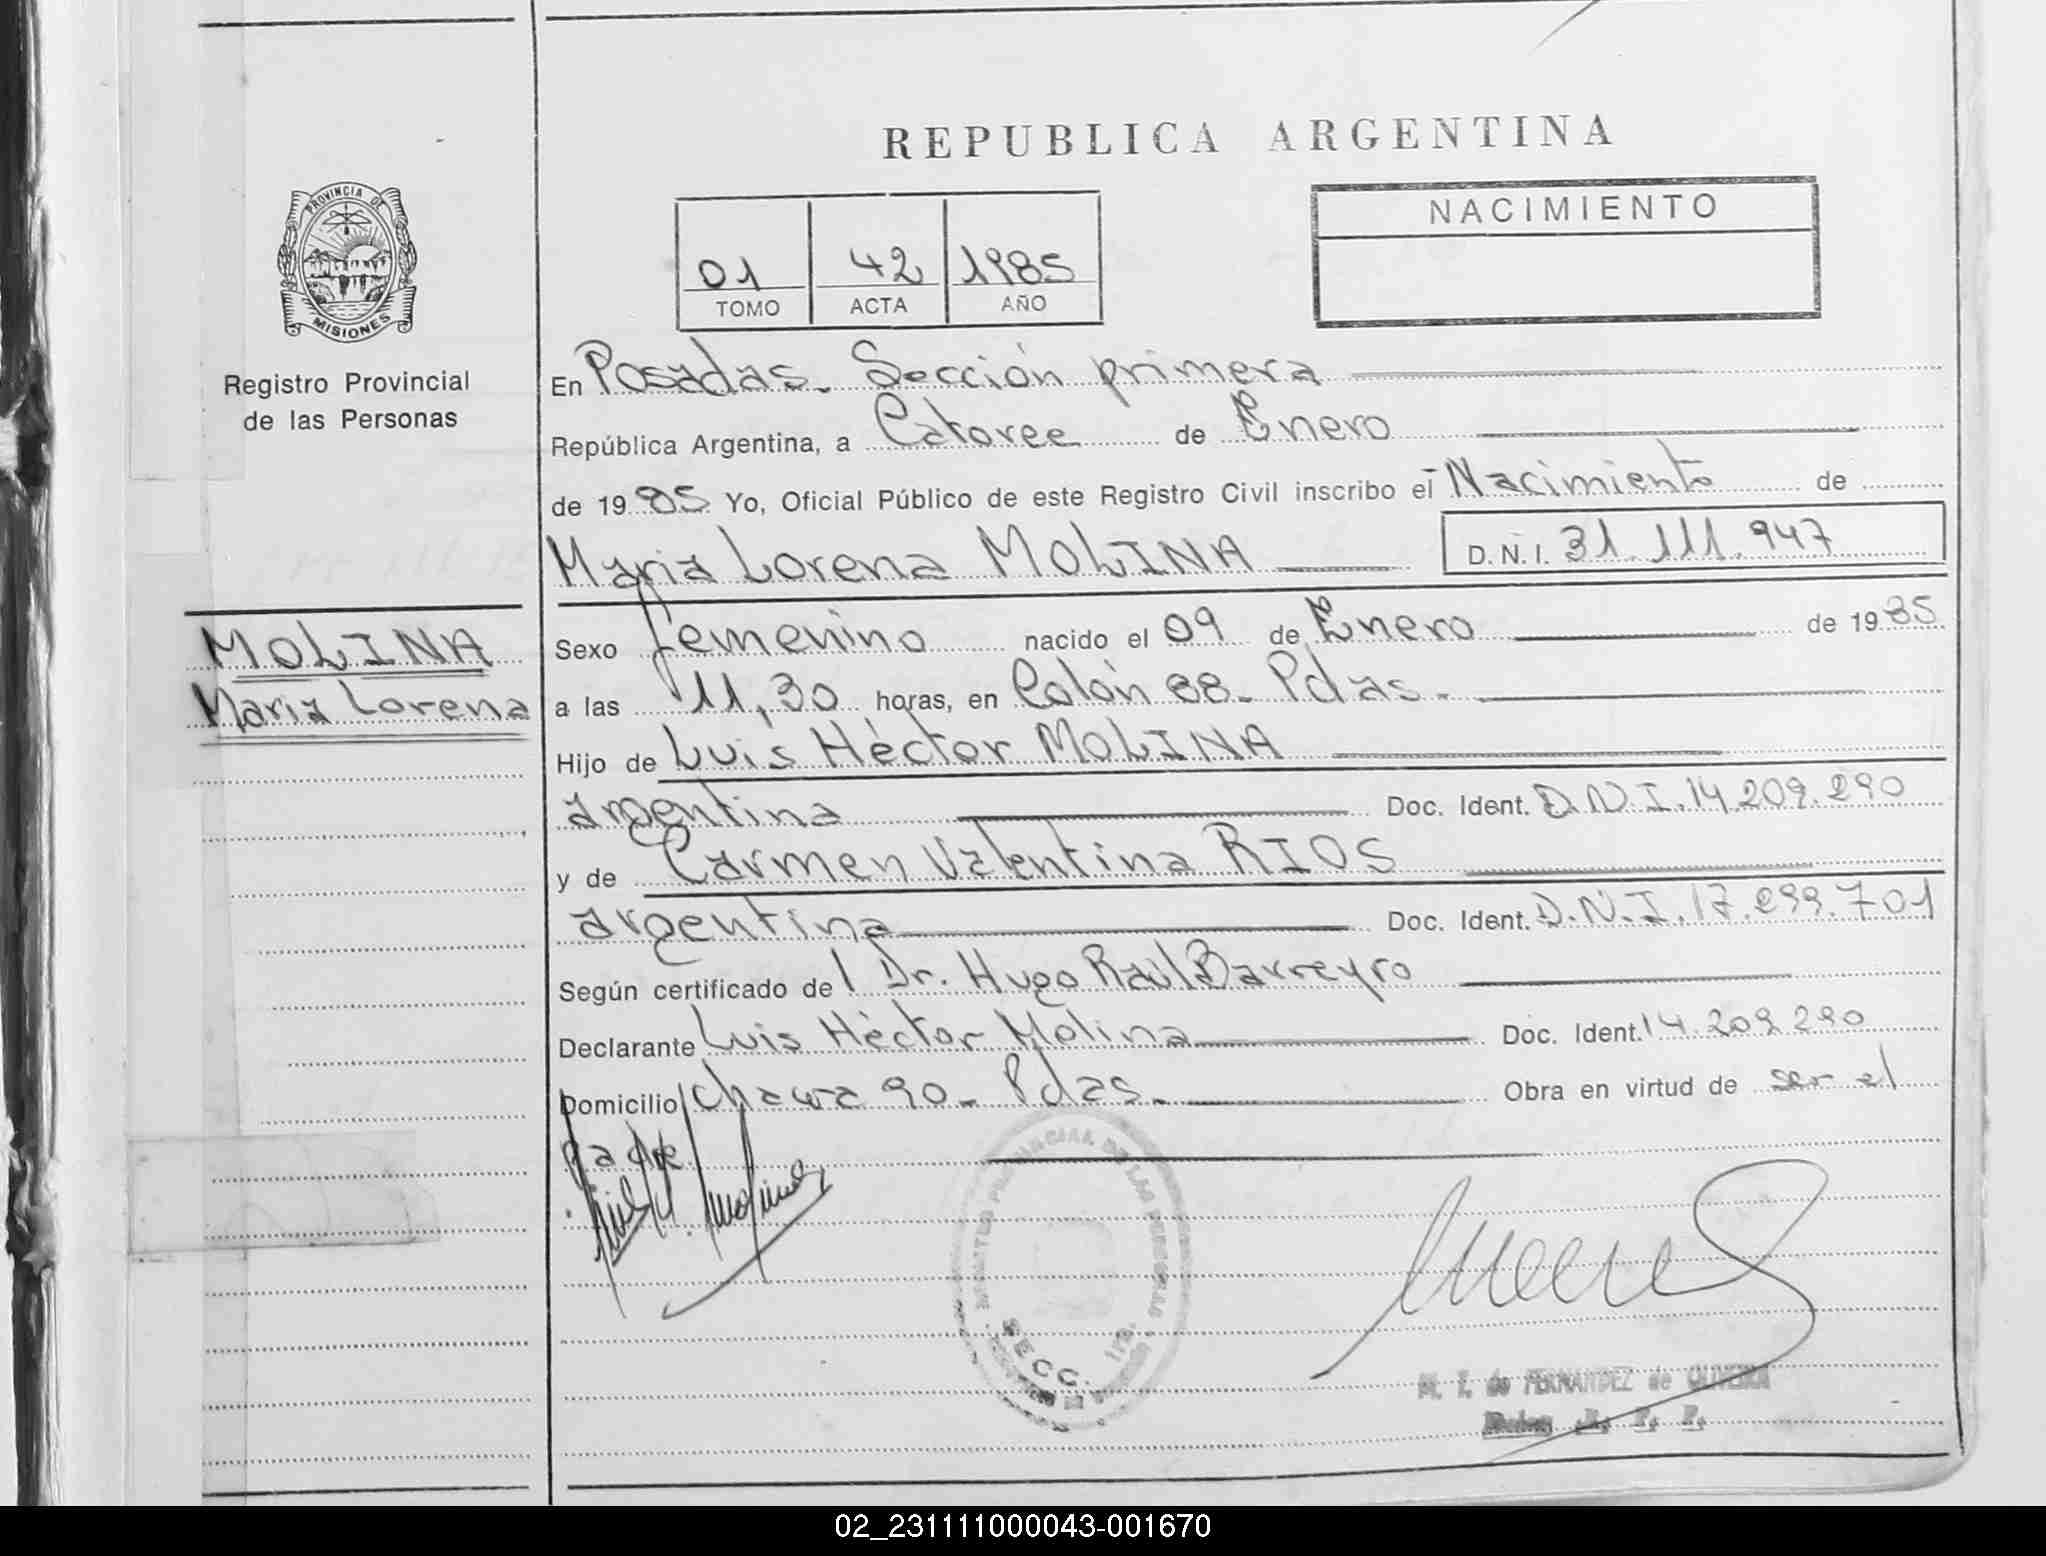 REPUBLICA ARGENTINA
PROVINCIA DE
MISIONES
Registro Provincial
de las Personas
NACIMIENTO
01 42 1985
TOMO ACTA AÑO
En Posadas. Sección primera
República Argentina, a Catorce de Enero
de 1985 Yo, Oficial Público de este Registro Civil inscribo el Nacimiento de
Maria Lorena MOLINA D.N.I. 31.111.947
MOLINA
Maria Lorena
Sexo femenino nacido el 09 de Enero de 1985
a las 11,30 horas, en Colón 88. Pdas.
Hijo de Luis Héctor MOLINA
argentina Doc. Ident. D.N.I.14.209.290
y de Carmen Valentina RIOS
argentina Doc. Ident. D.N.I.17.299.701
Según certificado del Dr. Hugo Raul Barreyro
Declarante Luis Héctor Molina Doc. Ident. 14.209.290
Domicilio 90. Pdas. Obra en virtud de ser el
padre
SECC. 1ra.
M. T. de FERNANDEZ de OLIVEIRA
02_231111000043-001670